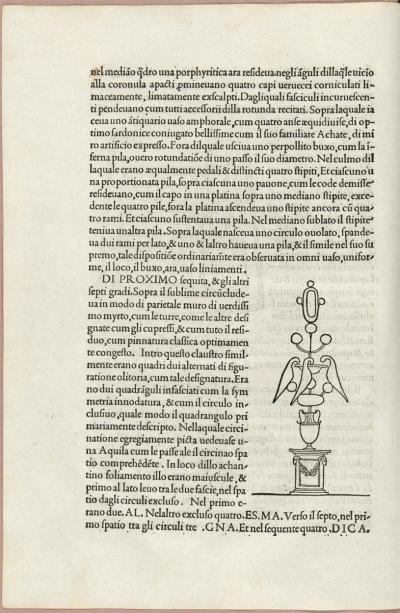 nel medião q̃dro una porphyritica ara resideva.negli ãguli dillaq̃le vicio
alla coronula apacti,pmineuano quatro capi veruecei corniculati li
maceamente, limatamente exscalpti. Dagli quali fasciculi incuruescen-
ti pendeuano cum tutti accessorii dilla rotunda recitati. Sopra laquale ia
ceua uno ãtiquario uaso amphorale, cum quatro anse æquidiuise, di op
timo sardonice coniugato bellissime cum il suo familiare Achate, di mi
ro artificio expresso. Fora dil quale usciua uno perpollito buxo, cum la ĩ
ferna pila, ouero rotundatiõe di uno passo il suo diametro. Nel culmo dil
laquale erano æqualmente pedali & distĩcti quatro stipiti, Et ciascuno u
na proportionata pila, sopra ciascuna uno pauone, cum le code demisse
resideuano, cum il capo in una platina sopra uno mediano stipite, exce-
dente le quatro pile, fora la platina ascendeua uno stipite ancora cũ qua
tro rami. Et ciascuno sustentaua una pila. Nel mediano sublato il stipite
teniua unaltra pila. Sopra laquale nasceua uno circulo ouolato, spande-
ua dui rami per lato, & uno & laltro haueua una pila, & il simile nel suo su
premo, tale dispositiõe ordinariamẽte era obseruata in omni uaso, unifor
me, il loco, il buxo, ara, uaso liniamenti.
DI PROXIMO sequita, & gli altri
septi gradi. Sopra il sublime circũclude-
ua in modo di parietale muro di uerdissi
mo myrto, cum le turre, come le altre desi
gnate cum gli cupressi, & cum tuto il resi-
duo, cum pinnatura classica optimamen
te congesto. Intro questo claustro simil-
mente erano quadri dui alternati di figu-
ratione olitoria, cum tale designatura. Era
no dui quadrãguli infasciati cum la sym
metria innodatura, & cum il circulo in-
clusiuo, quale modo il quadrangulo pri
mariamente descripto. Nellaquale circi-
natione egregiamente picta uedeuase u-
na Aquila cum le passe ale il circinao spa
tio comprehẽdẽte. In loco dillo achan-
tino foliamento illo erano maiuscule, &
primo al lato leuo tra le due fascie, nel spa
tio dagli circuli excluso. Nel primo e-
rano due. AL. Nel altro excluso quatro. ES.MA. Verso il septo, nel pri-
mo spatio tra gli circuli tre .GNA. Et nel sequente quatro .DICA.